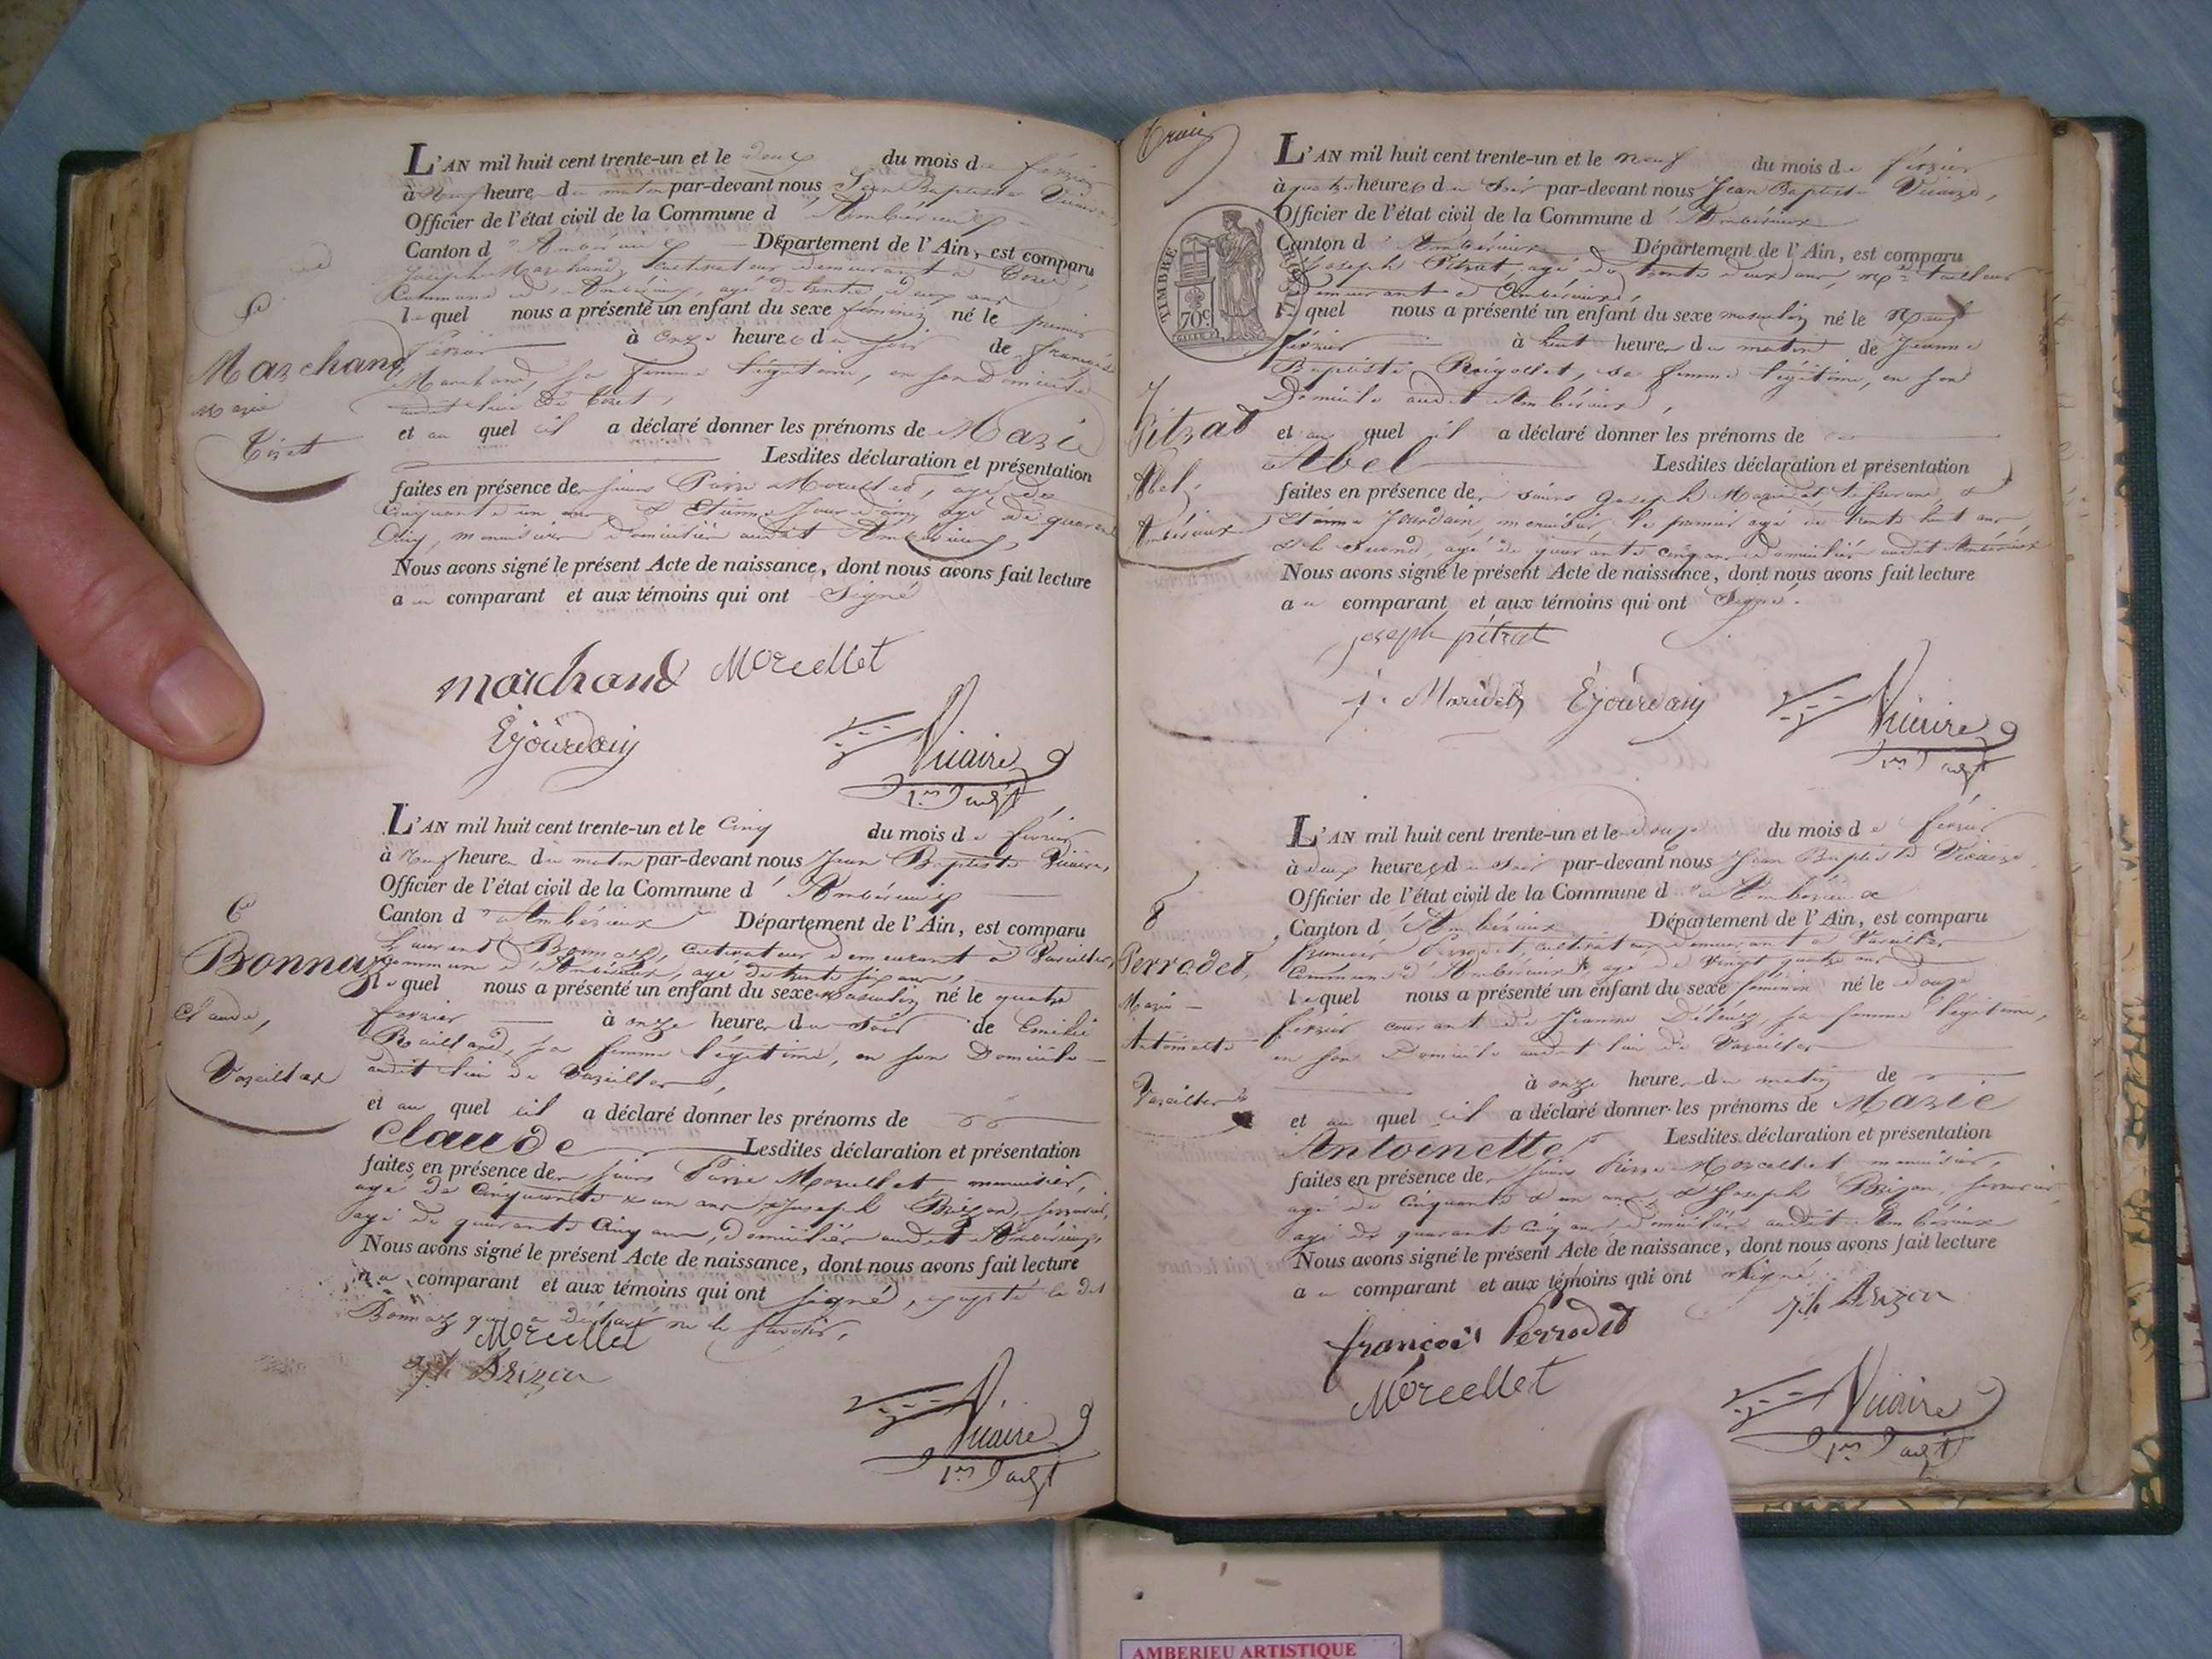 L'AN mil huit cent trente-un et le deux du mois de février
à neuf heure du matin par-devant nous Jean Baptiste Vicaire,
Officier de l'état civil de la Commune d'Ambérieux
Canton d'Ambérieux Département de l'Ain, est comparu
Joseph Marchand, cultivateur demeurant à Tiret,
Commune d'Ambérieux, agé de trente deux ans
lequel nous a présenté un enfant du sexe féminin né le premier
février à onze heures du soir de françoise
Marchand, sa femme légitime, en son domicile
audit lieu de Tiret,
et au quel il a déclaré donner les prénoms de Marie
Lesdites déclaration et présentation
faites en présence de sieurs Pierre Morcellet, agé de
Cinquante un ans & Etienne Jourdain, agé de quarante
Cinq, menuisiers domiciliés audit Ambérieux,
Nous avons signé le présent Acte de naissance, dont nous avons fait lecture
au comparant et aux témoins qui ont Signé
5
Marchand
Marie
Tiret
marchand Morcellet
E Jourdain
Vicaire
1er adjt
L'AN mil huit cent trente-un et le Cinq du mois de février
à Neuf heure du matin par-devant nous Jean Baptiste Vicaire,
Officier de l'état civil de la Commune d'Ambérieux
Canton d'Ambérieux Département de l'Ain, est comparu
Laurent Bonnaz, cultivateur demeurant à Vareilles,
Commune d'Ambérieux, agé de trente six ans,
lequel nous a présenté un enfant du sexe masculin né le quatre
février à onze heure du soir de Emilie
Railland, sa femme légitime, en son Domicile
audit lieu de Vareilles,
et au quel il a déclaré donner les prénoms de
Claude Lesdites déclaration et présentation
faites en présence de sieurs Pierre Morcellet, menuisier,
agé de Cinquante & un ans & Joseph Brizon, serrurier,
agé de quarante Cinq ans, domiciliés audit Ambérieux,
Nous avons signé le présent Acte de naissance, dont nous avons fait lecture
au comparant et aux témoins qui ont signé, excepté le dit
Bonnaz qui a déclaré ne le savoir,
6
Bonnaz
Claude,
Vareilles
Morcellet
Jph Brizon
Vicaire
1er adjt
Trois
TIMBRE ROYAL
70c
L'AN mil huit cent trente-un et le neuf du mois de février
à quatre heures du Soir par-devant nous Jean Baptiste Vicaire,
Officier de l'état civil de la Commune d'Ambérieux
Canton d'Ambérieux Département de l'Ain, est comparu
Joseph Pitrat, agé de trente deux ans, md tailleur
demeurant à Ambérieux,
lequel nous a présenté un enfant du sexe masculin né le Neuf
février à huit heure du matin de Jeanne
Baptiste Reigollet, sa femme légitime, en son
Domicile audit Ambérieux,
et au quel il a déclaré donner les prénoms de
Abel Lesdites déclaration et présentation
faites en présence de sieurs Joseph tisserand &
Etienne Jourdain, menuisier le premier agé de trente huit ans,
& le second, agé de quarante cinq ans domiciliés audit Ambérieux
Nous avons signé le présent Acte de naissance, dont nous avons fait lecture
au comparant et aux témoins qui ont Signé.
7
Pitrat
Abel,
Ambérieux
joseph pitrat
E Jourdain
Vicaire
1er adjt
L'AN mil huit cent trente-un et le douze du mois de février
à deux heures du Soir par-devant nous Jean Baptiste Vicaire
Officier de l'état civil de la Commune d'Ambérieux
Canton d'Ambérieux Département de l'Ain, est comparu
françois Perrodet, cultivateur demeurant à Vareilles
Commune d'Ambérieux, agé de Vingt quatre ans
lequel nous a présenté un enfant du sexe féminin né le douze
février courant de Jeanne sa femme légitime,
en son Domicile audit lieu de Vareilles
à onze heure du matin de
et au quel il a déclaré donner les prénoms de Marie
Antoinette Lesdites déclaration et présentation
faites en présence de sieurs Pierre Morcellet menuisier,
agé de Cinquante & un ans, & Joseph Brizon, serrurier,
agé de quarante Cinq ans domiciliés audit Ambérieux
Nous avons signé le présent Acte de naissance, dont nous avons fait lecture
au comparant et aux témoins qui ont Signé
8
Perrodet,
Marie
Antoinette
Vareilles
françois Perrodet
Jph Brizon
Morcellet
Vicaire
1er adjt
AMBERIEU ARTISTIQUE